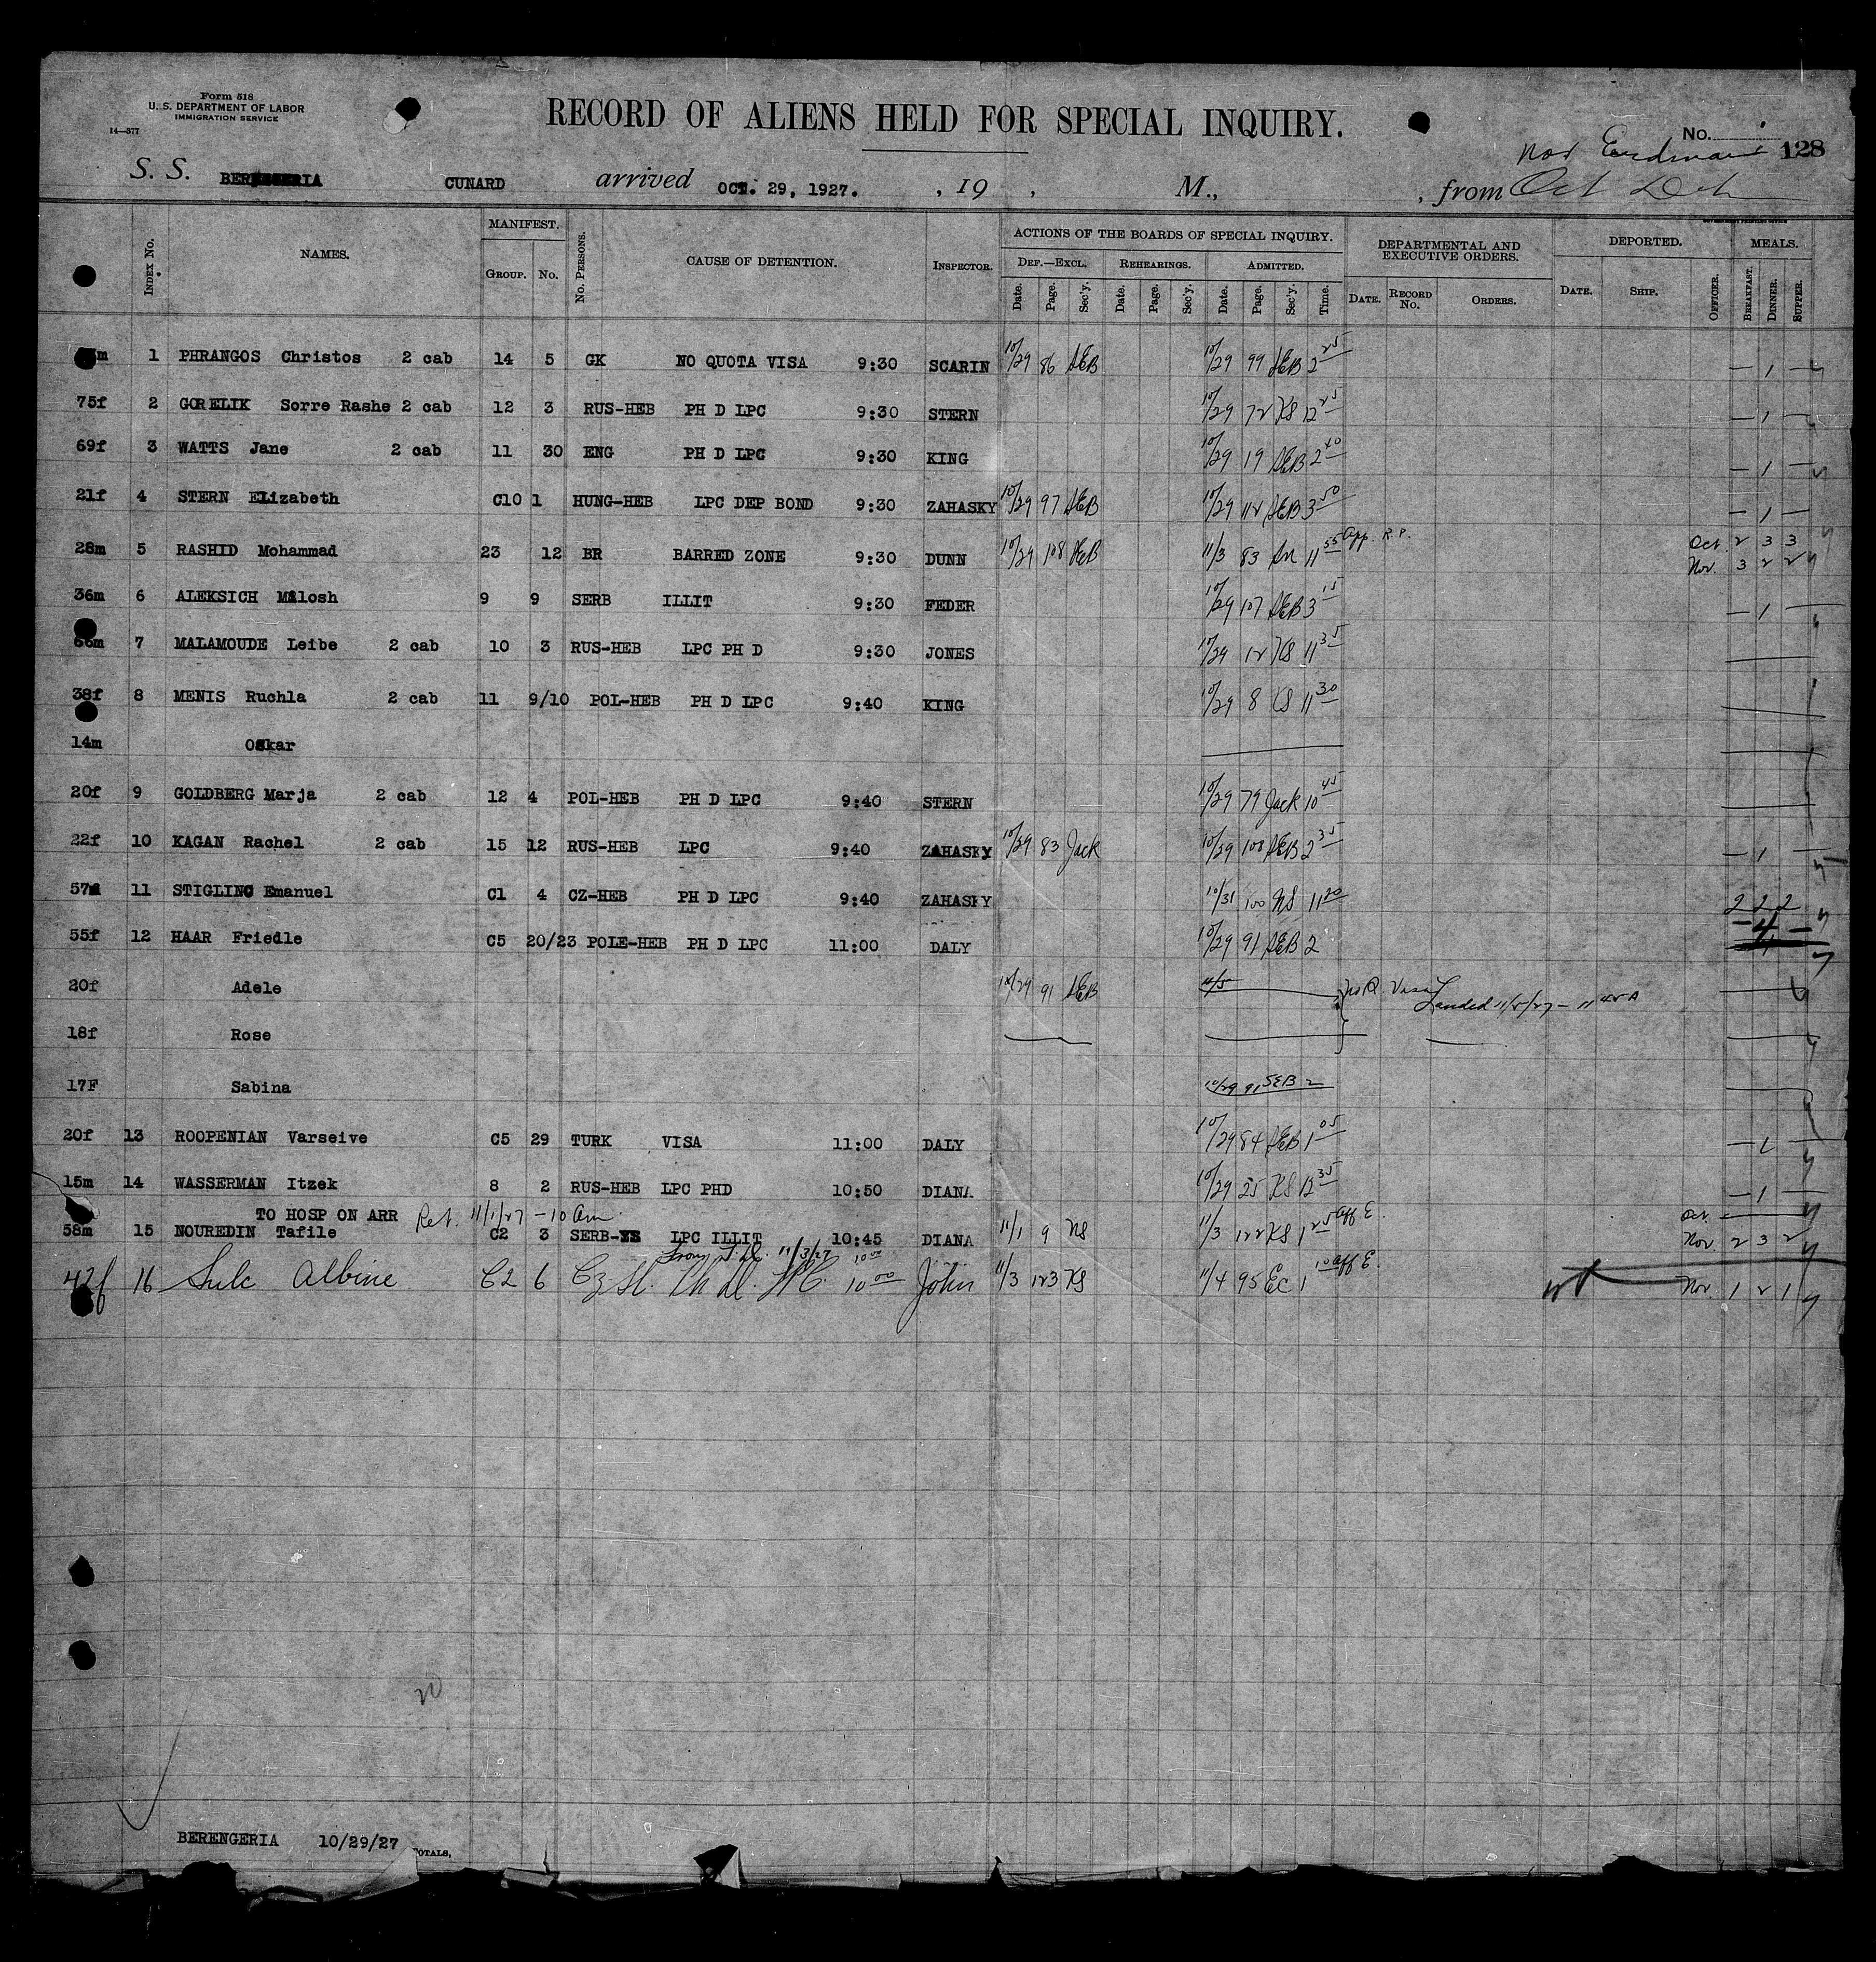 Form 518
U. S. DEPARTMENT OF LABOR
IMMIGRATION SERVICE
14—577
RECORD OF ALIENS HELD FOR SPECIAL INQUIRY.
No. 128
S. S. BERENGERIA CUNARD arrived OCT. 29, 1927. , 19 , M., , from Oct
GOVERNMENT PRINTING OFFICE
INDEX NO. NAMES. MANIFEST. GROUP. NO. NO. PERSONS. CAUSE OF DETENTION. INSPECTOR. ACTIONS OF THE BOARDS OF SPECIAL INQUIRY. DEF.—EXCL. REHEARINGS. ADMITTED. DEPARTMENTAL AND EXECUTIVE ORDERS. DEPORTED. MEALS.
Date. Page. Sec'y. Date. Page. Sec'y. Date. Page. Sec'y. Time. DATE. RECORD NO. ORDERS. DATE. SHIP. OFFICER. BREAKFAST. DINNER. SUPPER.
m 1 PHRANGOS Christos 2 cab 14 5 GK NO QUOTA VISA 9:30 SCARIN 10/29 86 SEB 10/29 99 SEB 2 25 — 1 —
75f 2 GORELIK Sorre Rashe 2 cab 12 3 RUS-HEB PH D LPC 9:30 STERN 10/29 72 KS 12 25 — 1 —
69f 3 WATTS Jane 2 cab 11 30 ENG PH D LPC 9:30 KING 10/29 19 SEB 2 40 — 1 —
21f 4 STERN Elizabeth C10 1 HUNG-HEB LPC DEP BOND 9:30 ZAHASKY 10/29 97 SEB 10/29 112 SEB 3 50 — 1 —
28m 5 RASHID Mohammad 23 12 BR BARRED ZONE 9:30 DUNN 10/29 108 SEB 11/3 83 11 55 App. R.P. Oct. 2 3 3
Nov. 3 2 2
36m 6 ALEKSICH Milosh 9 9 SERB ILLIT 9:30 FEDER 10/29 107 SEB 3 15 — 1 —
66m 7 MALAMOUDE Leibe 2 cab 10 3 RUS-HEB LPC PH D 9:30 JONES 10/29 12 KS 11 35
38f 8 MENIS Ruchla 2 cab 11 9/10 POL-HEB PH D LPC 9:40 KING 10/29 8 KS 11 30
14m Oskar
20f 9 GOLDBERG Marja 2 cab 12 4 POL-HEB PH D LPC 9:40 STERN 10/29 79 Jack 10 45
22f 10 KAGAN Rachel 2 cab 15 12 RUS-HEB LPC 9:40 ZAHASKY 10/29 83 Jack 10/29 100 SEB 2 35 — 1 —
57m 11 STIGLING Emanuel C1 4 CZ-HEB PH D LPC 9:40 ZAHASKY 10/31 100 NS 11 20 2 2 2
55f 12 HAAR Friedle C5 20/23 POLE-HEB PH D LPC 11:00 DALY 10/29 91 SEB 2 — 4 —
20f Adele 10/29 91 SEB 11/5 Visa
Landed 11/5/27 — 11 45 A
18f Rose
17F Sabina 10/29 91 SEB 2
20f 13 ROOPENIAN Varseive C5 29 TURK VISA 11:00 DALY 10/29 84 SEB 1 05 — 1 —
15m 14 WASSERMAN Itzek 8 2 RUS-HEB LPC PHD 10:50 DIANA 10/29 25 KS 12 35 — 1 —
TO HOSP ON ARR Ret. 11/1/27 — 10 am. Oct.
58m 15 NOUREDIN Tafile C2 3 SERB- LPC ILLIT 10:45 DIANA 11/1 9 NS 11/3 122 KS 1 25 aff E. Nov. 2 3 2
from T.D. 11/3/27 10 00
42f 16 Sulc Albine C2 6 Cz-Sl. Ph D. LPC 10 00 John 11/3 123 KS 11/4 95 EC 1 10 aff E. Nov. 1 2 1
BERENGERIA 10/29/27 TOTALS,